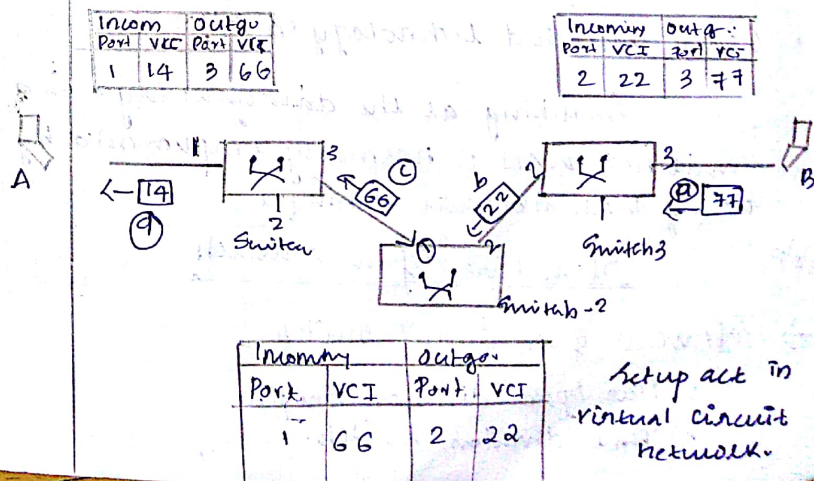 Incom Outgo
Port VCI Port VCI
1 14 3 66
Incoming outg.
Port VCI Port VCI
2 22 3 77
A
1
3
14
2
Switch
c
66
b
22
2
3
a
77
B
Switch3
1
2
Switch-2
Incoming outgo.
Port VCI Port VCI
1 66 2 22
Setup ack in
virtual circuit
network.